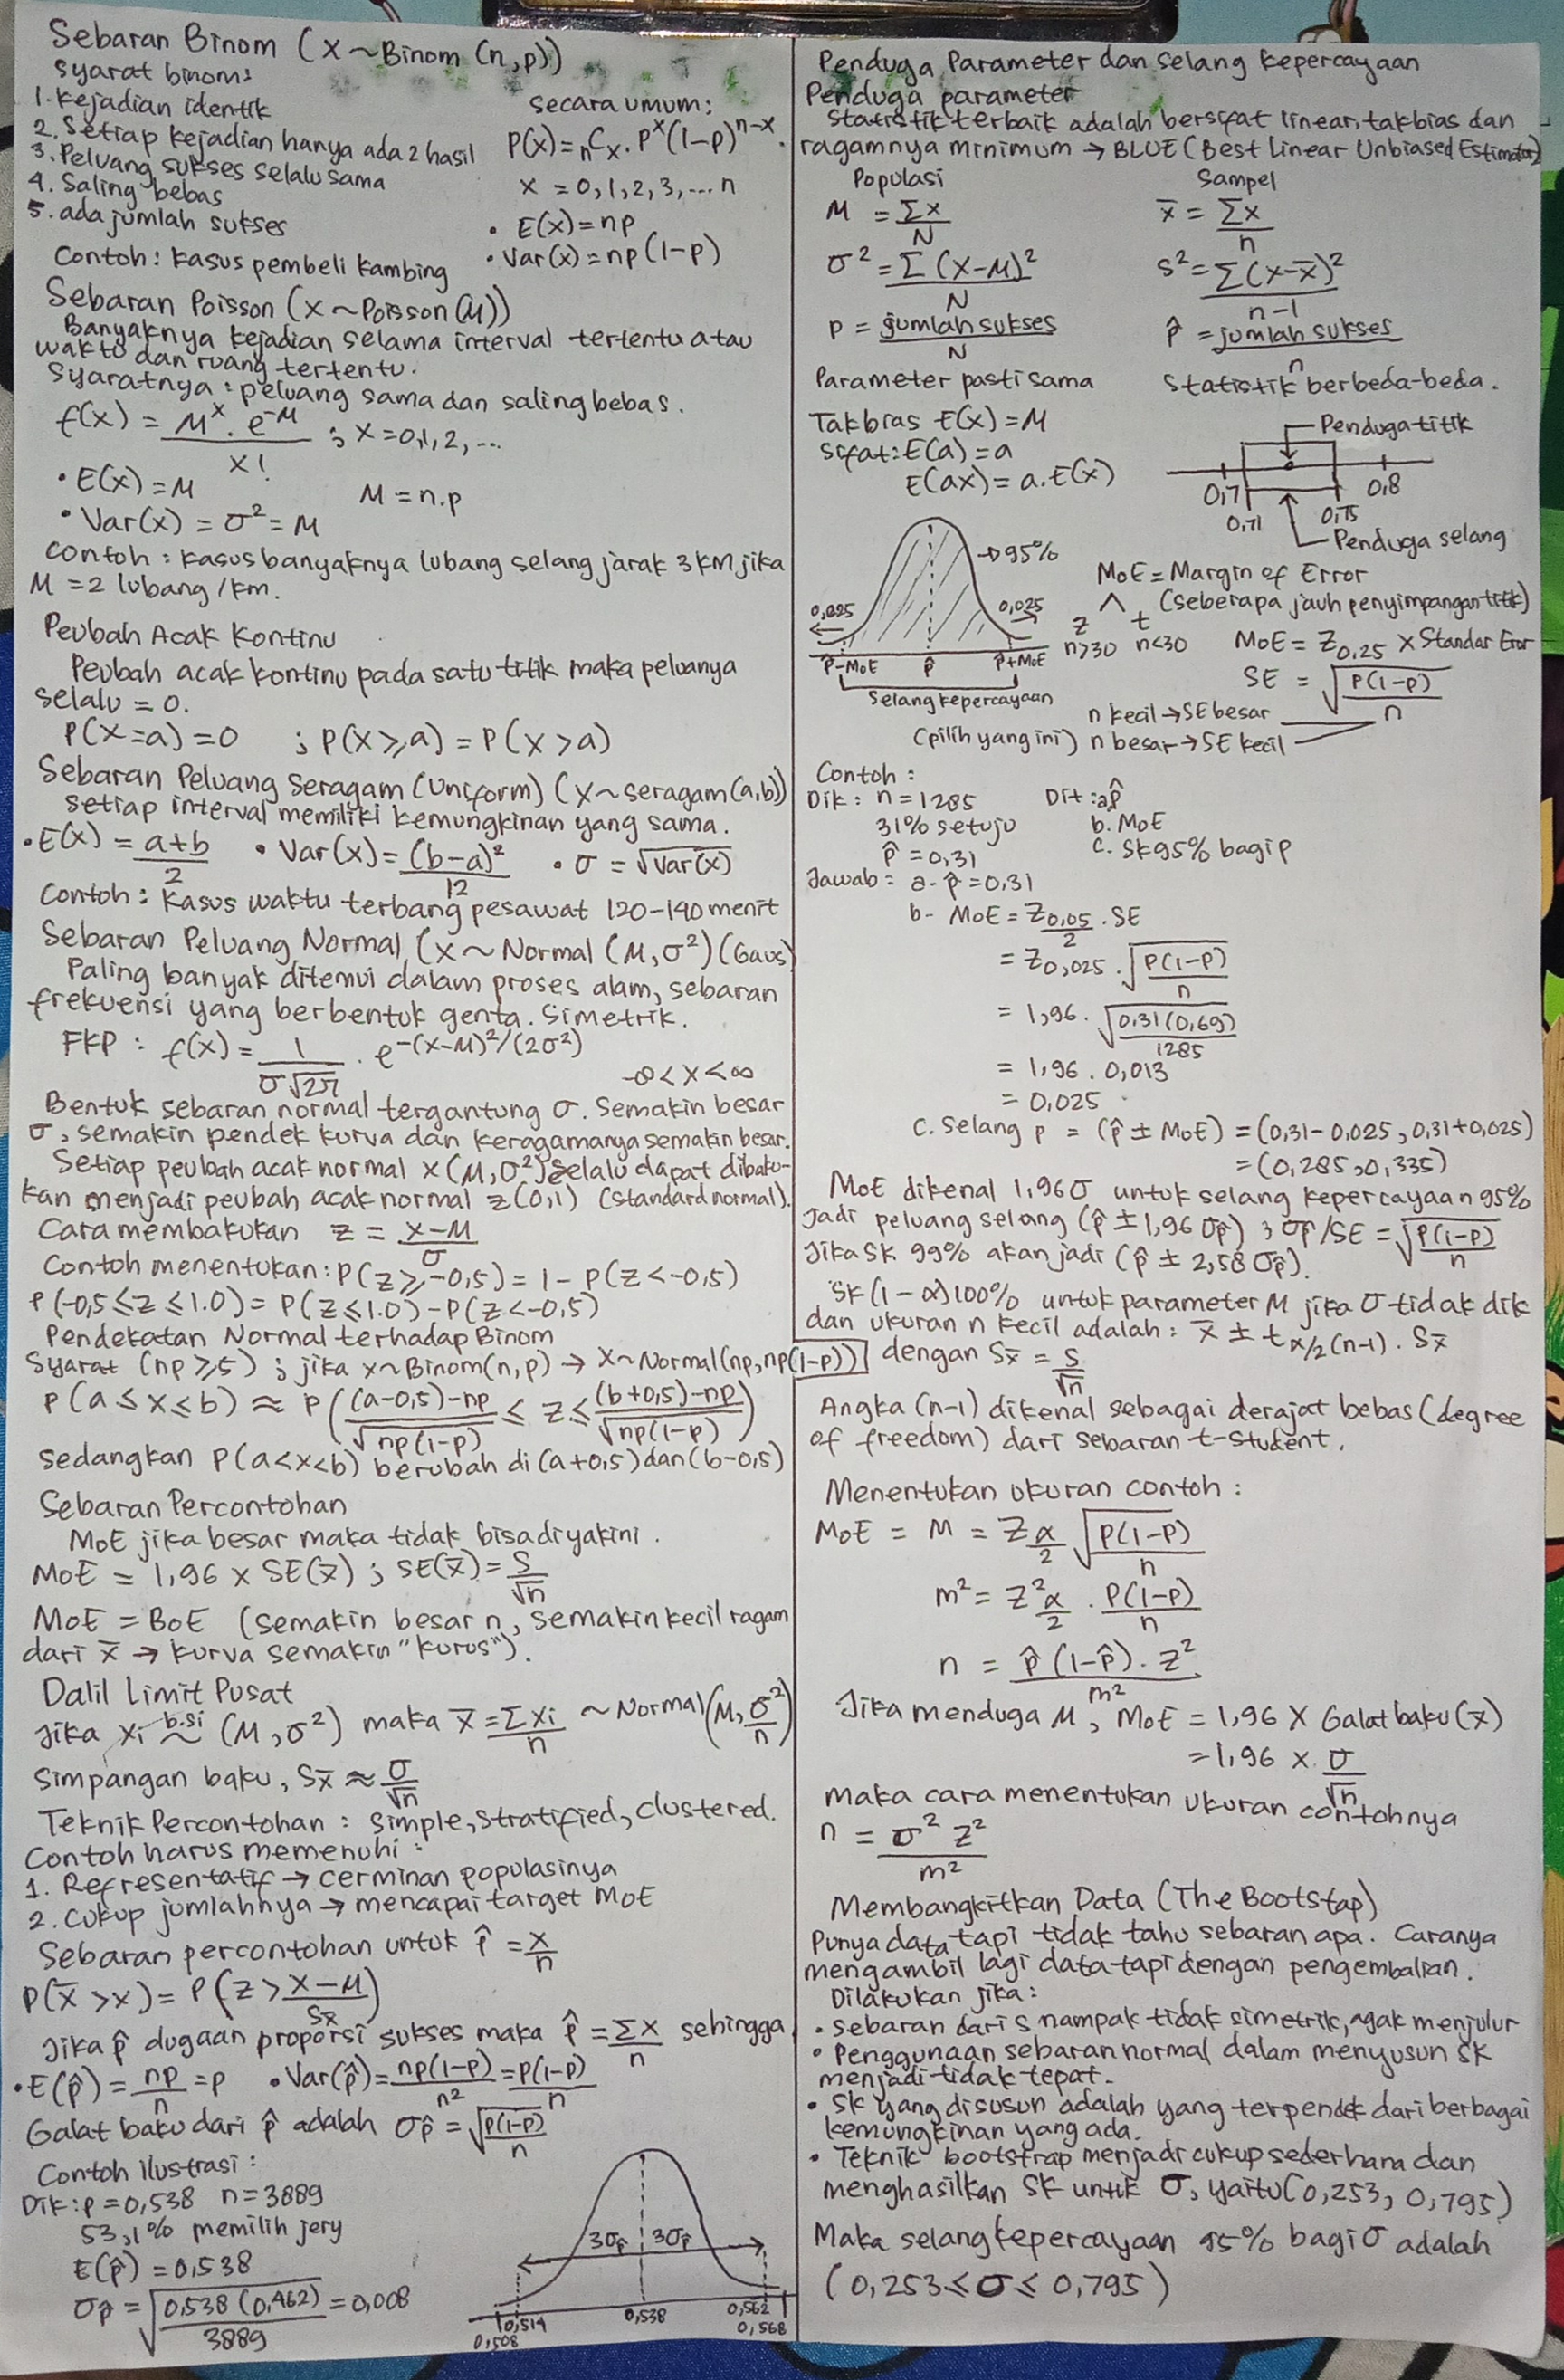 Sebaran Binom (X ~ Binom (n,p))
Syarat binom:
1. Kejadian identik
2. Setiap kejadian hanya ada 2 hasil
3. Peluang sukses selalu sama
4. Saling bebas
5. ada jumlah sukses
Contoh: Kasus pembeli kambing
secara umum:
P(x) = nCx . P^x (1-p)^(n-x)
x = 0,1,2,3,... n
• E(x) = np
• Var(x) = np(1-p)
Sebaran Poisson (X ~ Poisson (μ))
Banyaknya kejadian selama interval tertentu atau
waktu dan ruang tertentu.
Syaratnya : peluang sama dan saling bebas.
f(x) = μ^x . e^-μ / x! ; x = 0,1,2, ...
• E(x) = μ     μ = n.p
• Var(x) = σ² = μ
Contoh : Kasus banyaknya lubang selang jarak 3 km jika
μ = 2 lubang / km.
Peubah Acak Kontinu
Peubah acak kontinu pada satu titik maka peluanya
selalu = 0.
P(X=a) = 0 ; P(X ≥ a) = P(X > a)
Sebaran Peluang Seragam (Uniform) (X ~ seragam (a,b))
setiap interval memiliki kemungkinan yang sama.
• E(x) = a+b / 2  • Var(x) = (b-a)² / 12  • σ = √Var(x)
Contoh : Kasus waktu terbang pesawat 120-140 menit
Sebaran Peluang Normal (X ~ Normal (μ, σ²) (Gaus)
Paling banyak ditemui dalam proses alam, sebaran
frekuensi yang berbentuk genta. Simetrik.
FKP : f(x) = 1 / σ√2π . e^-(x-μ)²/(2σ²)
-∞ < x < ∞
Bentuk sebaran normal tergantung σ. Semakin besar
σ, semakin pendek kurva dan keragamanya semakin besar.
Setiap peubah acak normal X(μ, σ²) selalu dapat dibaku-
kan menjadi peubah acak normal z(0,1) (standard normal).
Cara membakukan z = x-μ / σ
Contoh menentukan : P(z ≥ -0,5) = 1 - P(z < -0,5)
P(-0,5 ≤ z ≤ 1.0) = P(z ≤ 1.0) - P(z < -0,5)
Pendekatan Normal terhadap Binom
Syarat (np ≥ 5) ; jika x ~ Binom(n,p) → X ~ Normal (np, np(1-p))
P(a ≤ x ≤ b) ≈ P((a-0,5)-np / √np(1-p) ≤ z ≤ (b+0,5)-np / √np(1-p))
sedangkan P(a<x<b) berubah di (a+0,5) dan (b-0,5)
Sebaran Percontohan
MoE jika besar maka tidak bisa diyakini.
MoE = 1,96 x SE(x̄) ; SE(x̄) = s / √n
MoE = BoE (semakin besar n, semakin kecil ragam
dari x̄ → kurva semakin "kurus").
Dalil Limit Pusat
Jika xi b.s.i ~ (μ, σ²) maka x̄ = Σxi / n ~ Normal (μ, σ² / n)
Simpangan baku, Sx̄ ≈ σ / √n
Teknik Percontohan : Simple, stratified, clustered.
Contoh harus memenuhi :
1. Refresentatif → cerminan populasinya
2. Cukup jumlahnya → mencapai target MoE
Sebaran percontohan untuk p̂ = x / n
P(x̄ > x) = P(z > x-μ / Sx̄)
Jika p̂ dugaan proporsi sukses maka p̂ = Σx / n sehingga
• E(p̂) = np / n = p  • Var(p̂) = np(1-p) / n² = p(1-p) / n
Galat baku dari p̂ adalah σp̂ = √p(1-p) / n
Contoh ilustrasi :
Dik : p = 0,538  n = 3889
53,1% memilih jery
E(p̂) = 0,538
σp̂ = √0,538 (0,462) / 3889 = 0,008
3σp̂ 3σp̂
0,514 0,538 0,562
0,508 0,568
Penduga Parameter dan Selang Kepercayaan
Penduga parameter
Statistik terbaik adalah bersifat linear, takbias dan
ragamnya minimum → BLUE (Best Linear Unbiased Estimator)
Populasi     Sampel
μ = Σx / N     x̄ = Σx / n
σ² = Σ(x-μ)² / N     s² = Σ(x-x̄)² / n-1
p = jumlah sukses / N     p̂ = jumlah sukses / n
Parameter pasti sama     Statistik berbeda-beda.
Takbias E(x) = μ
Sifat : E(a) = a
E(ax) = a.E(x)
Penduga titik
0,7 0,8
0,71 0,75
Penduga selang
→ 95%
0,025 0,025
p̂-MoE p̂ p̂+MoE
Selang kepercayaan
MoE = Margin of Error
(seberapa jauh penyimpangan titik)
z t
n>30 n<30
MoE = Z0,25 x Standar Eror
SE = √P(1-p) / n
n kecil → SE besar
(pilih yang ini) n besar → SE kecil
Contoh :
Dik : n = 1285     Dit : a. p̂
31% setuju     b. MoE
p̂ = 0,31     c. SK 95% bagi p
Jawab = a. p̂ = 0,31
b. MoE = Z0,05/2 . SE
= Z0,025 . √P(1-p) / n
= 1,96 . √0,31(0,69) / 1285
= 1,96 . 0,013
= 0,025
c. Selang p = (p̂ ± MoE) = (0,31 - 0,025, 0,31 + 0,025)
= (0,285, 0,335)
MoE dikenal 1,96σ untuk selang kepercayaan 95%
Jadi peluang selang (p̂ ± 1,96 σp̂) ; σp̂/SE = √P(1-p) / n
Jika SK 99% akan jadi (p̂ ± 2,58 σp̂).
SK (1-α)100% untuk parameter μ jika σ tidak dik
dan ukuran n kecil adalah : x̄ ± t α/2 (n-1) . Sx̄
dengan Sx̄ = s / √n
Angka (n-1) dikenal sebagai derajat bebas (degree
of freedom) dari sebaran t-student.
Menentukan ukuran contoh :
MoE = M = Z α/2 √P(1-P) / n
m² = Z² α/2 . P(1-P) / n
n = p̂ (1-p̂) . z² / m²
Jika menduga μ, MoE = 1,96 x Galat baku (x)
= 1,96 x σ / √n
maka cara menentukan ukuran contohnya
n = σ² z² / m²
Membangkitkan Data (The Bootstap)
Punya data tapi tidak tahu sebaran apa. Caranya
mengambil lagi data tapi dengan pengembalian.
Dilakukan jika :
• Sebaran dari s nampak tidak simetrik, agak menjulur
• Penggunaan sebaran normal dalam menyusun SK
menjadi tidak tepat.
• SK yang disusun adalah yang terpendek dari berbagai
kemungkinan yang ada.
• Teknik bootstrap menjadi cukup sederhana dan
menghasilkan SK untuk σ, yaitu (0,253, 0,795)
Maka selang kepercayaan 95% bagi σ adalah
(0,253 ≤ σ ≤ 0,795)